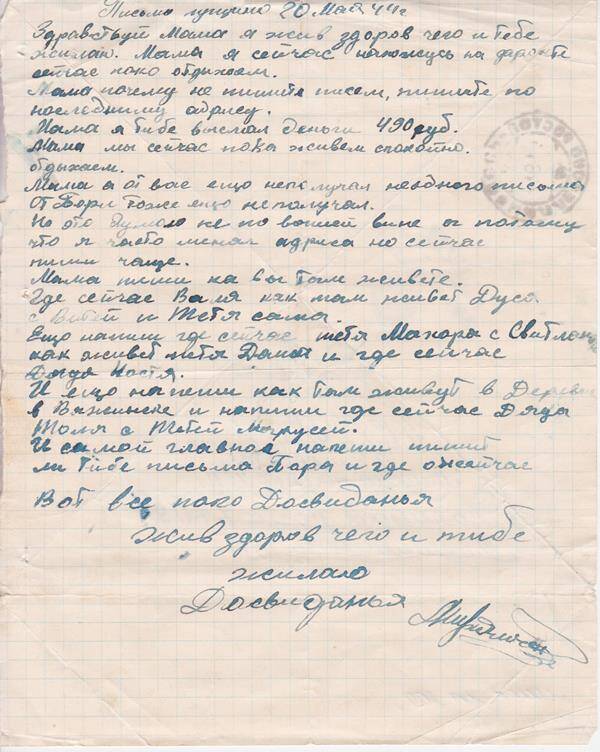 Письмо пущино 20 Мая 44г
Здравствуй Мама я жив здоров чего и тебе
жилаю. Мама я сейчас нахожусь на фронте
сейчас поко отдыхаем.
Мама почему не пишите писем, пишите по
последнему адресу.
Мама я тибе выслал деньги 490 руб.
Мама мы сейчас пока живем спокойно.
отдыхаем.
Мама а от вас ещо неполучал неодного письма
От Бори тоже ещо неполучал.
Но это думаю не по вашей вине а потому
что я часто менял адриса но сейчас
пиши чаще.
Мама пиши ка вы там живете.
Где сейчас Валя как там живет Дуся
с Витей и Тетя сама.
Ещо напиши где сейчас тетя Махора с Свитланой
как живет тетя и где сейчас
Дядя Костя.
И ещо напеши как там живут в Деревне
в и напиши где сейчас Дядя
Толя с Тетей Марусей.
И самой главное напеши пишит
ли тибе письма Боря и где он сейчас
Вот все поко Досвиданья
жив здоров чего и тибе
жилаю
Досвиданья